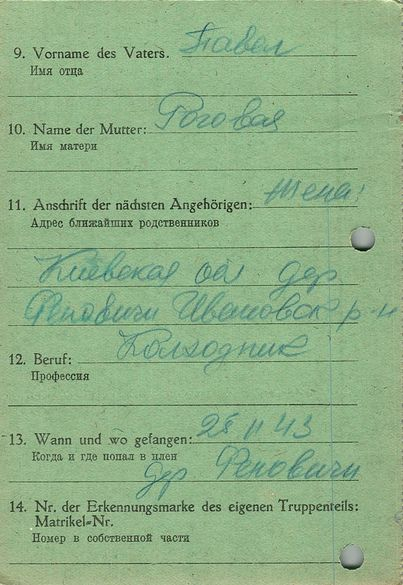 9. Vorname des Vaters. Павел
Имя отца
10. Name der Mutter: Роговая
Имя матери
11. Anschrift der nächsten Angehörigen: Жена:
Адрес ближайших родственников
Киевская обл дер
Феновичи Ивановск р-н
12. Beruf: Колходник
Профессия
13. Wann und wo gefangen: 25 11 43
Когда и где попал в плен
дер Феновичи
14. Nr. der Erkennungsmarke des eigenen Truppenteils:
Matrikel-Nr.
Номер в собственной части